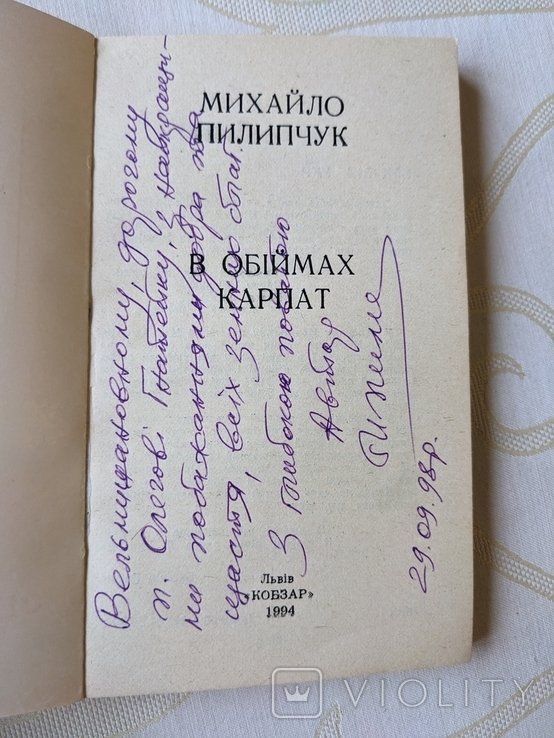 МИХАЙЛО
ПИЛИПЧУК
В ОБІЙМАХ
КАРПАТ
Львів
«КОБЗАР»
1994
Вельмишановному, дорогому
п. Олегові Гнатейку, з найкращи-
ми побажаннями добра та
щастя, всіх земних благ.
З глибокою повагою
Автор
29.09.98р.
VIOLITY